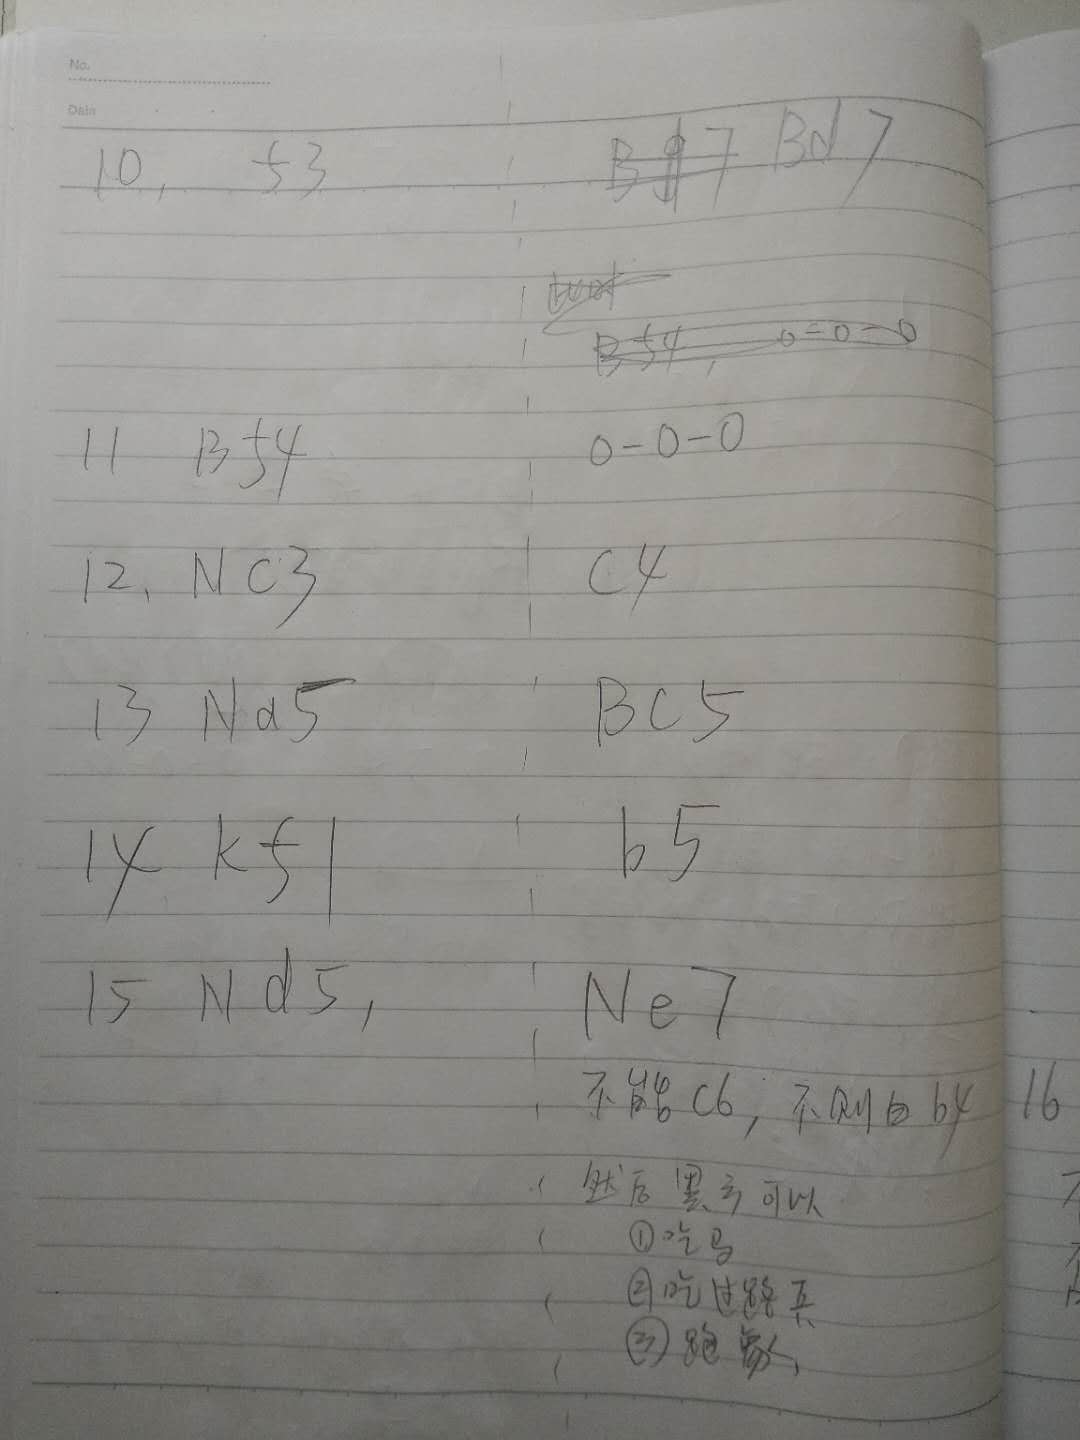 No.
Date
10, f3 Bd7
11 Bf4 0-0-0
12, Nc3 c4
13 Na5 Bc5
14 kf1 b5
15 Nd5, Ne7
不能c6,不则白b4 16
然后黑方可以
①吃马
②吃过路兵
③跑象,